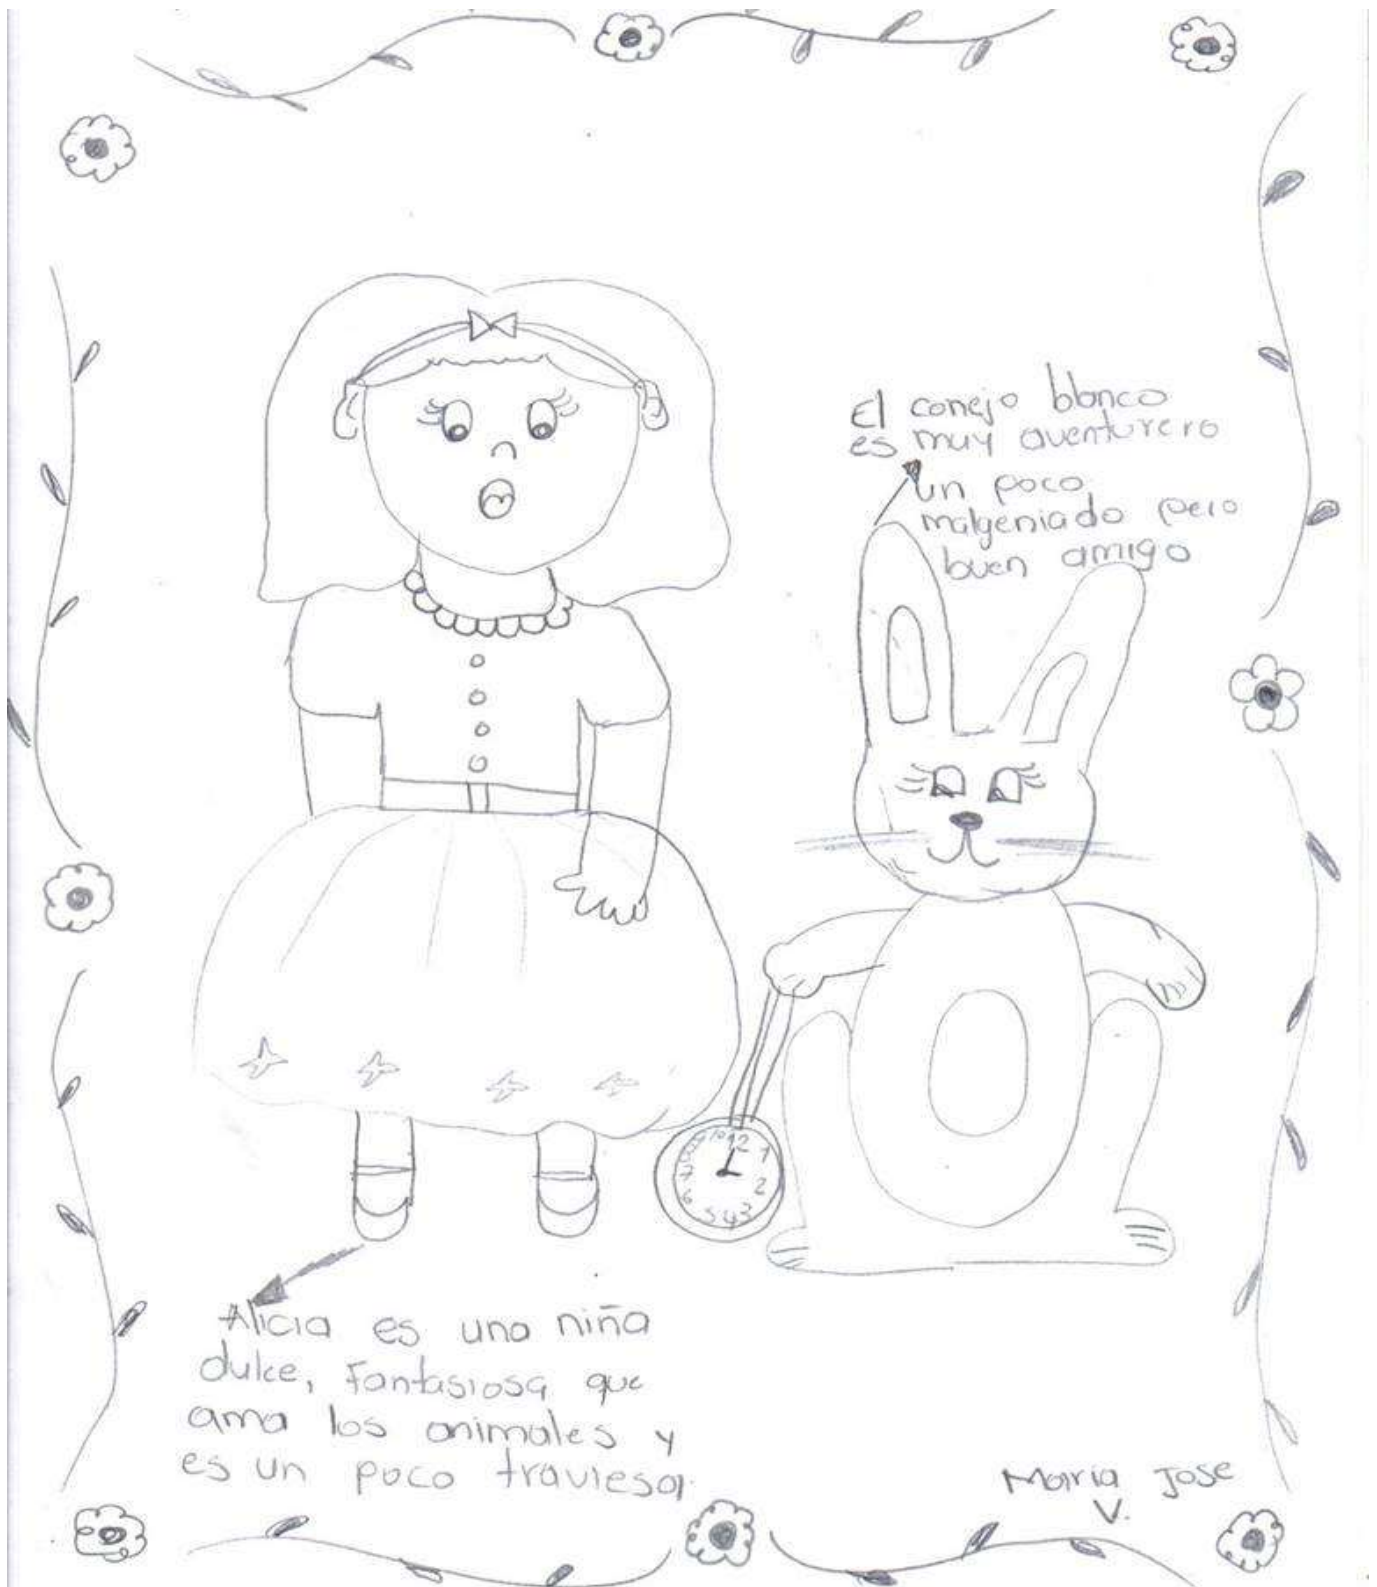 El conejo blanco
es muy aventurero
un poco
malgeniado pero
buen amigo
10 12 1
9
8
7
2
6
3
5 4
Alicia es una niña
dulce, Fantasiosa que
ama los animales y
es un poco traviesa.
Maria Jose
V.